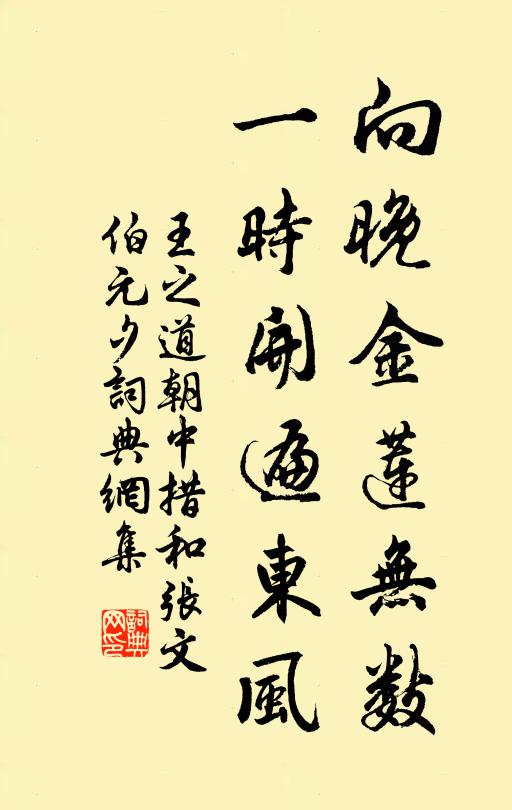 向晚金蓮無數
一時開遍東風
王之道朝中措和張文
伯元夕詞典網集
詞典網印